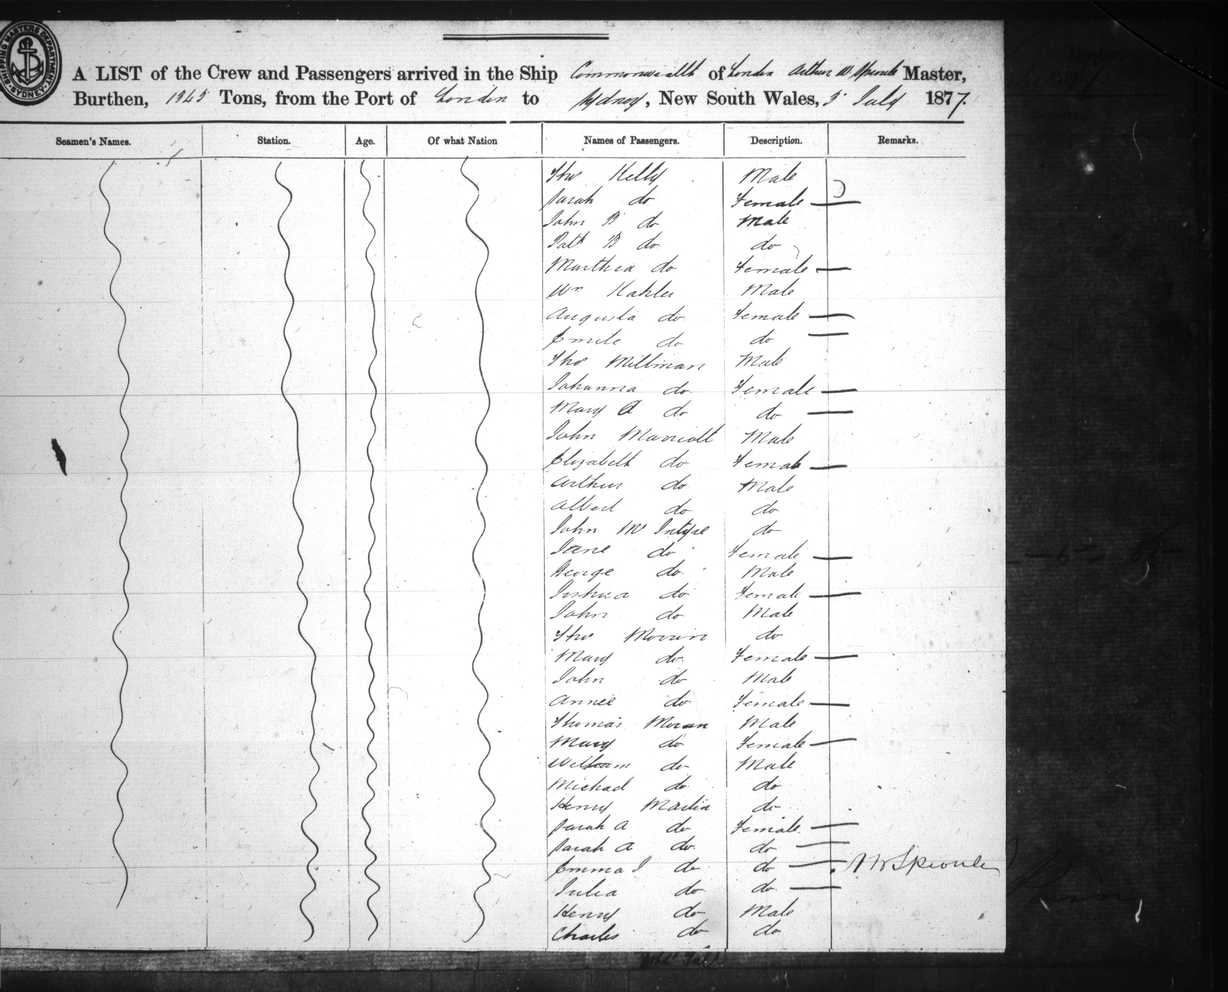 SHIPPING MASTERS DEPARTMENT SYDNEY
A LIST of the Crew and Passengers arrived in the Ship Commonwealth of London Arthur W. Sproule Master,
Burthen, 1345 Tons, from the Port of London to Sydney, New South Wales, 3 July 1877.
Seamen's Names. Station. Age. Of what Nation Names of Passengers. Description. Remarks.
Thos Kelly Male
Sarah do Female
John B do Male
Patk B do do
Martha do Female
Wm Kahler Male
Augusta do Female
Emile do do
Thos Millman Male
Johanna do Female
Mary A do do
John Marriott Male
Elizabeth do Female
Arthur do Male
Albert do do
John McIntyre do
Jane do Female
George do Male
do Female
John do Male
Thos do
Mary do Female
John do Male
Annie do Female
Thomas Moran Male
Mary do Female
William do Male
Michael do do
Henry Martin do
Sarah A do Female
Sarah A do do
Emma J do do A W Sproule
Julia do do
Henry do Male
Charles do do